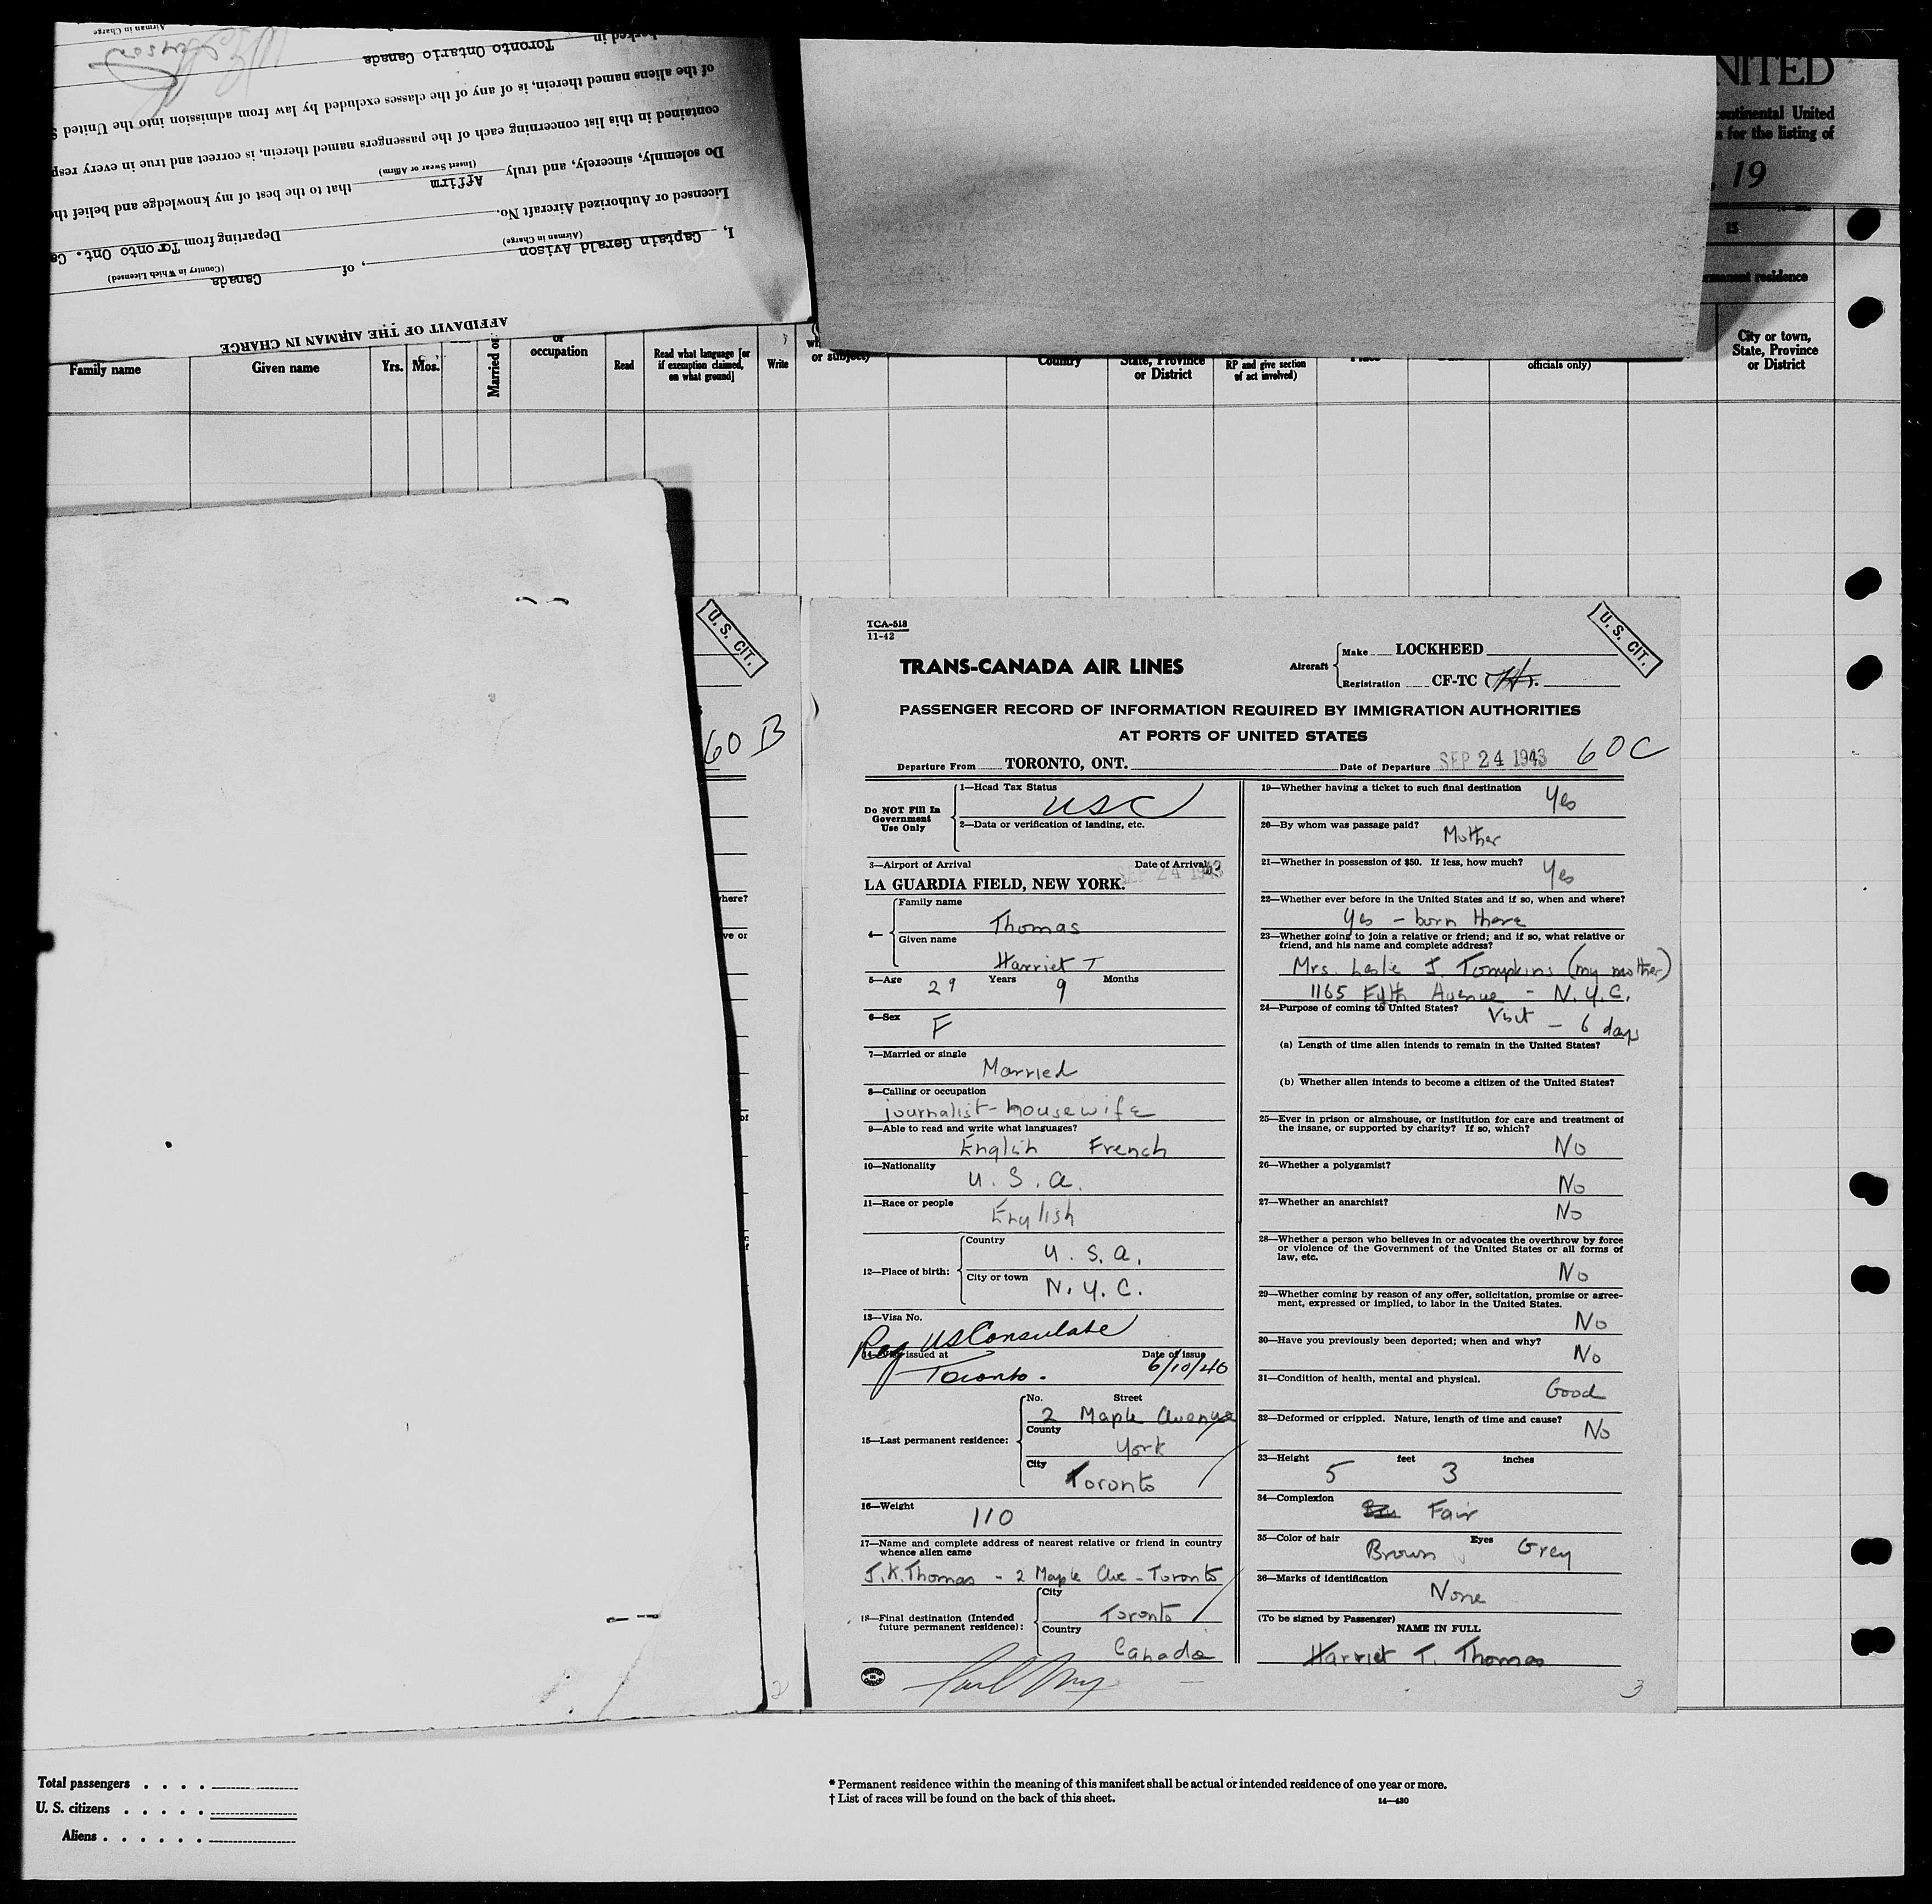 Airman in Charge
Toronto Ontario Canada
of the aliens named therein, is of any of the classes excluded by law from admission into the United
contained in this list concerning each of the passengers named therein, is correct and true in every
Do solemnly, sincerely, and truly Affirm that to the best of my knowledge and belief
(Insert Swear or Affirm)
Licensed or Authorized Aircraft No. Departing from Toronto Ont.
I, Captain Gerald Avison, of Canada
(Airman in Charge) (Country in Which Licensed)
AFFIDAVIT OF THE AIRMAN IN CHARGE
NITED
continental United
for the listing of
, 19
15
residence
City or town,
State, Province
or District
Family name
Given name
Yrs.
Mos.
Married or
or
occupation
Read
Read what language [or
if exemption claimed,
on what ground]
Write
or subject)
Country
State, Province
or District
RP and give section
of act involved)
Place
officials only)
U. S. CIT.
60 B
here?
ve or
of
2
TCA-518
11-42
U. S. CIT.
TRANS-CANADA AIR LINES
Aircraft
Make LOCKHEED
Registration CF-TC (H).
PASSENGER RECORD OF INFORMATION REQUIRED BY IMMIGRATION AUTHORITIES
AT PORTS OF UNITED STATES
Departure From TORONTO, ONT. Date of Departure SEP 24 1943 60C
Do NOT Fill In
Government
Use Only
1—Head Tax Status
USC
2—Data or verification of landing, etc.
3—Airport of Arrival Date of Arrival
LA GUARDIA FIELD, NEW YORK. SEP 24 1943
4—
Family name
Thomas
Given name
Harriet T
5—Age 29 Years 9 Months
6—Sex F
7—Married or single
Married
8—Calling or occupation
journalist-housewife
9—Able to read and write what languages?
English French
10—Nationality
U. S. A.
11—Race or people
English
12—Place of birth:
Country
U. S. A.
City or town
N. Y. C.
13—Visa No.
Reg US Consulate
14— issued at Date of issue
Toronto. 6/10/40
15—Last permanent residence:
No. Street
2 Maple Avenue
County
York
City
Toronto
16—Weight
110
17—Name and complete address of nearest relative or friend in country
whence alien came
J. K. Thomas - 2 Maple Ave - Toronto
18—Final destination (Intended
future permanent residence):
City
Toronto
Country
Canada
19—Whether having a ticket to such final destination Yes
20—By whom was passage paid?
Mother
21—Whether in possession of $50. If less, how much?
Yes
22—Whether ever before in the United States and if so, when and where?
Yes – born there
23—Whether going to join a relative or friend; and if so, what relative or
friend, and his name and complete address?
Mrs. Leslie J. Tompkins (my mother)
1165 Fifth Avenue - N. Y. C.
24—Purpose of coming to United States? Visit – 6 days
(a) Length of time alien intends to remain in the United States?
(b) Whether alien intends to become a citizen of the United States?
25—Ever in prison or almshouse, or institution for care and treatment of
the insane, or supported by charity? If so, which?
No
26—Whether a polygamist?
No
27—Whether an anarchist?
No
28—Whether a person who believes in or advocates the overthrow by force
or violence of the Government of the United States or all forms of
law, etc.
No
29—Whether coming by reason of any offer, solicitation, promise or agree-
ment, expressed or implied, to labor in the United States.
No
30—Have you previously been deported; when and why?
No
31—Condition of health, mental and physical.
Good
32—Deformed or crippled. Nature, length of time and cause?
No
33—Height 5 feet 3 inches
34—Complexion
Fair
35—Color of hair Brown Eyes Grey
36—Marks of identification
None
(To be signed by Passenger)
NAME IN FULL
Harriet T. Thomas
3
Total passengers
U. S. citizens
Aliens
* Permanent residence within the meaning of this manifest shall be actual or intended residence of one year or more.
† List of races will be found on the back of this sheet.
14—430